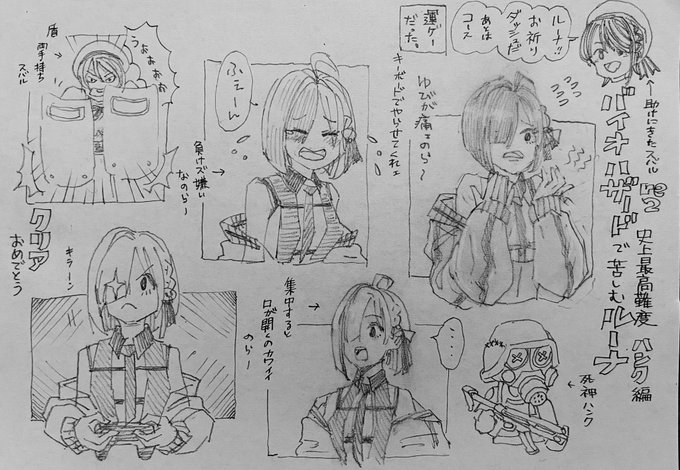 ←助けにきたスバル
バイオハザードで苦しむルーナ
re2
史上最高難度 ハンク編
ルーナ!!
お祈り
ダッシュだ
あとは
コース
運ゲー
だった。
ゆびが痛ェのら〜
キーボードでやらせてくれェ
ふぇーん
負けズ嫌い
なのら〜
→
うぉぉぉぉ
盾
両手持ち
スバル
→
クリア
おめでとう
キラーン
集中すると
口が開くのカワイイ
のら〜
→
・・・
←死神ハンク